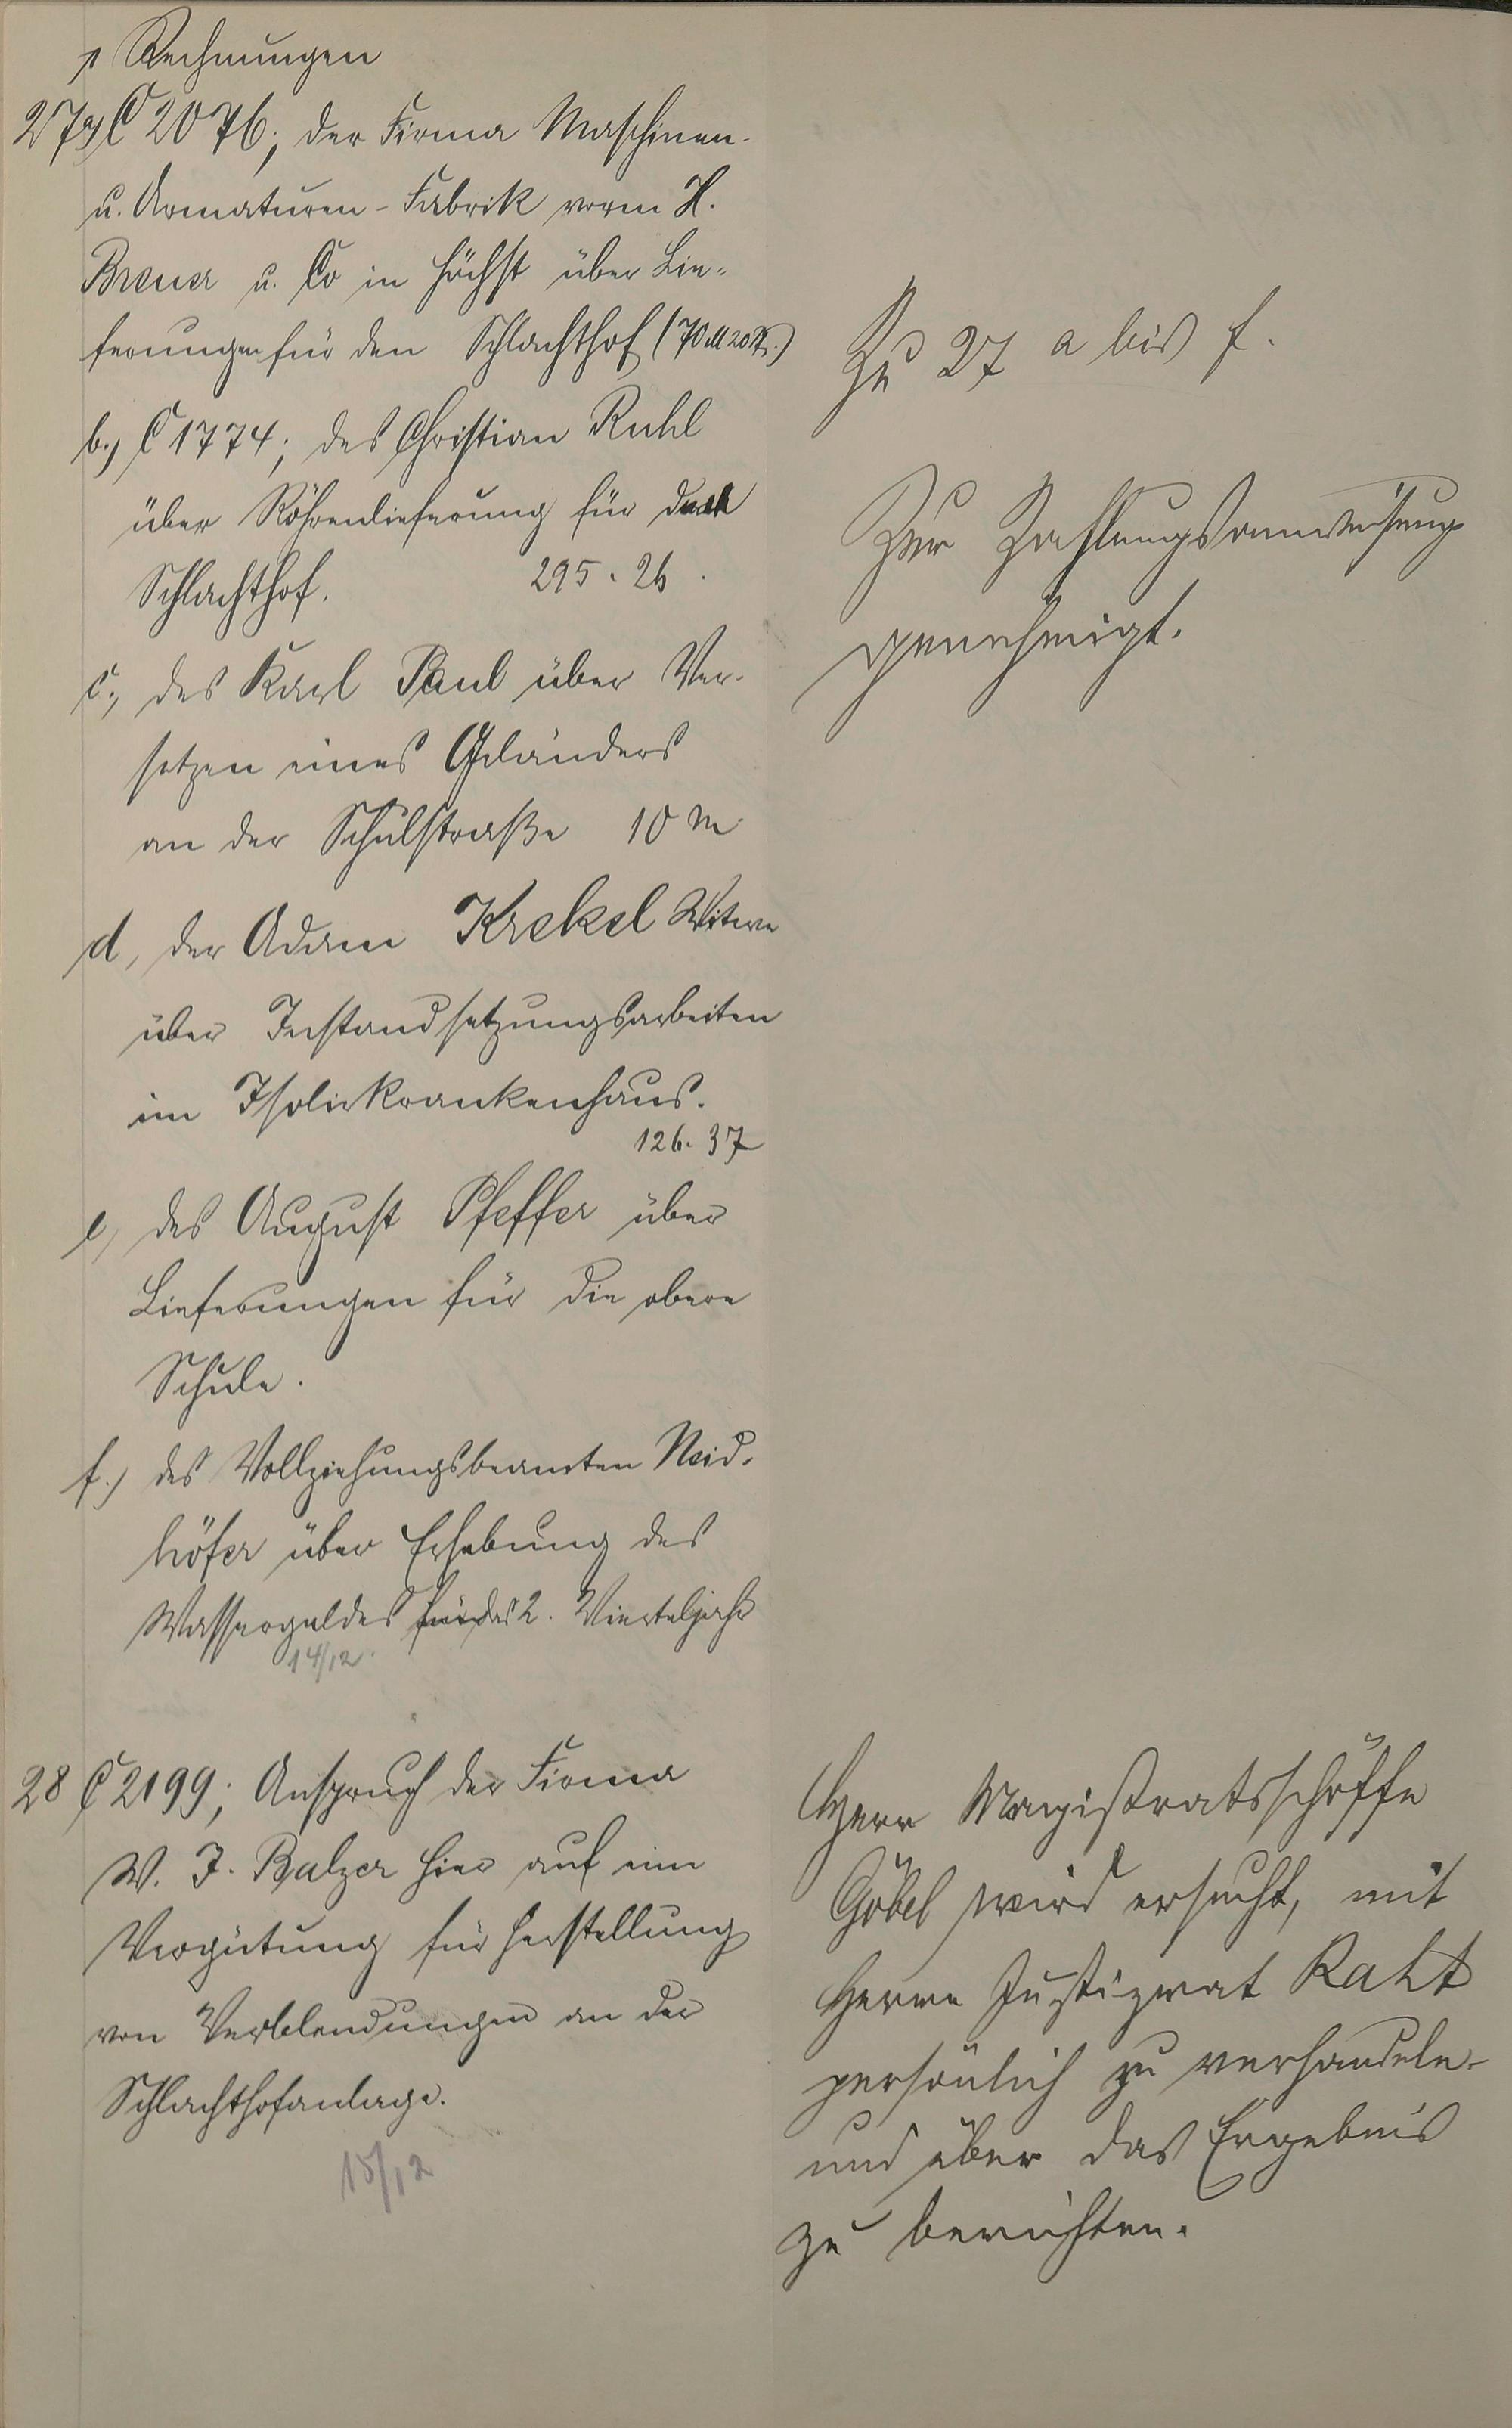 Rechnungen
27a) C 2076; der Firma Maschinen-
u. Armaturen-Fabrik vorm H.
Breuer u. Co in Höchst über Lie-
ferungen für den Schlachthof (70 M 20 Pf.)
b.) C 1774; des Christian Ruhl
über Röhrenlieferung für den
Schlachthof. 295.26.
c., des Karl Paul über Ver-
setzen eines Geländers
an der Schulstraße 10 M
d, der Adam Krekel Witwe
über Instandsetzungsarbeiten
im Isolierkrankenhaus.
126.37
e, des August Pfeffer über
Lieferungen für die obere
Schule.
f.) des Vollziehungsbeamten Neid-
höfer über Erhebung des
Wassergeldes für das 2. Vierteljahr
14/12.
28 C 2199; Anspruch der Firma
W. J. Balzer hier auf eine
Vergütung für Herstellung
von Verblendungen an der
Schlachthofanlage.
15/12
Zu 27 a bis f.
Zur Zahlungsanweisung
genehmigt.
Herr Magistratsschöffe
Göbel wird ersucht, mit
Herrn Justizrat Raht
persönlich zu verhandeln
und über das Ergebnis
zu berichten.